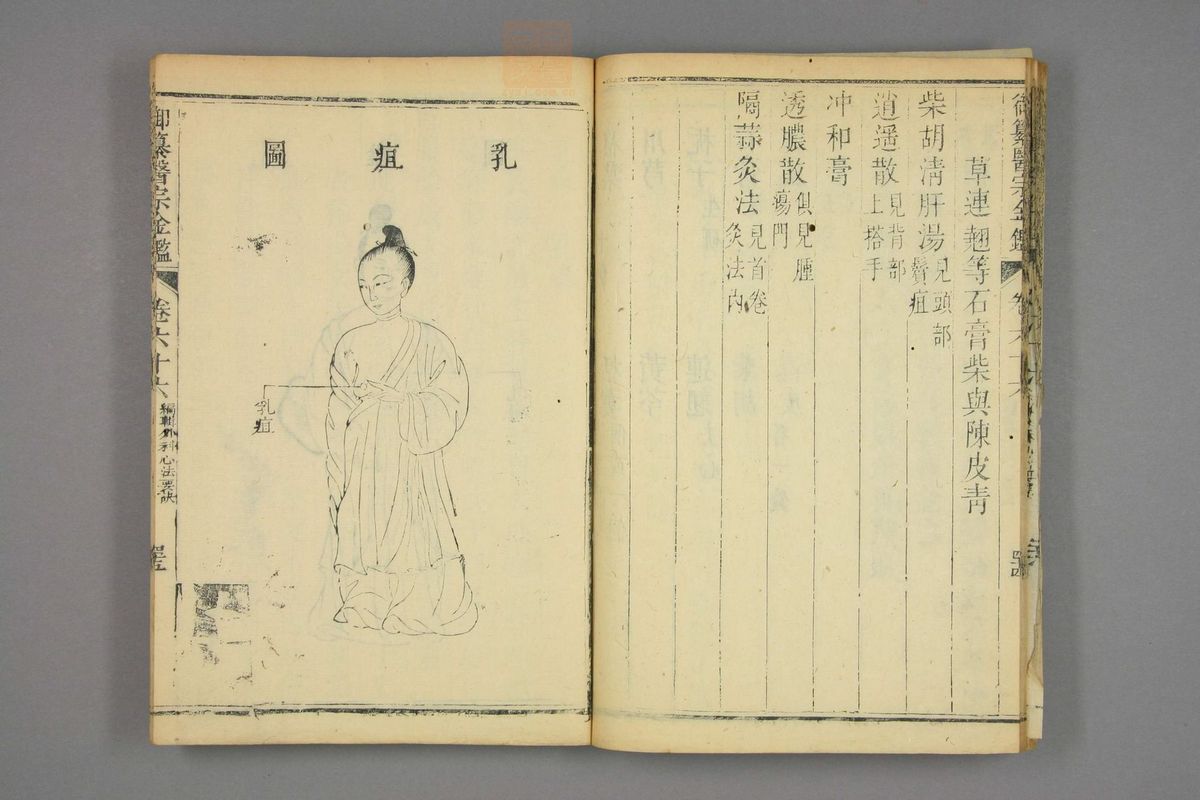 御纂醫宗金鑑 卷六十六
草連翹等石膏柴與陳皮青
柴胡清肝湯見頭部鬢疽
逍遥散見背部上搭手
冲和膏
透膿散俱見腫瘍門
隔蒜灸法見首卷灸法內
乳疽圖
乳疽
御纂醫宗金鑑 卷六十六 編輯外科心法要訣